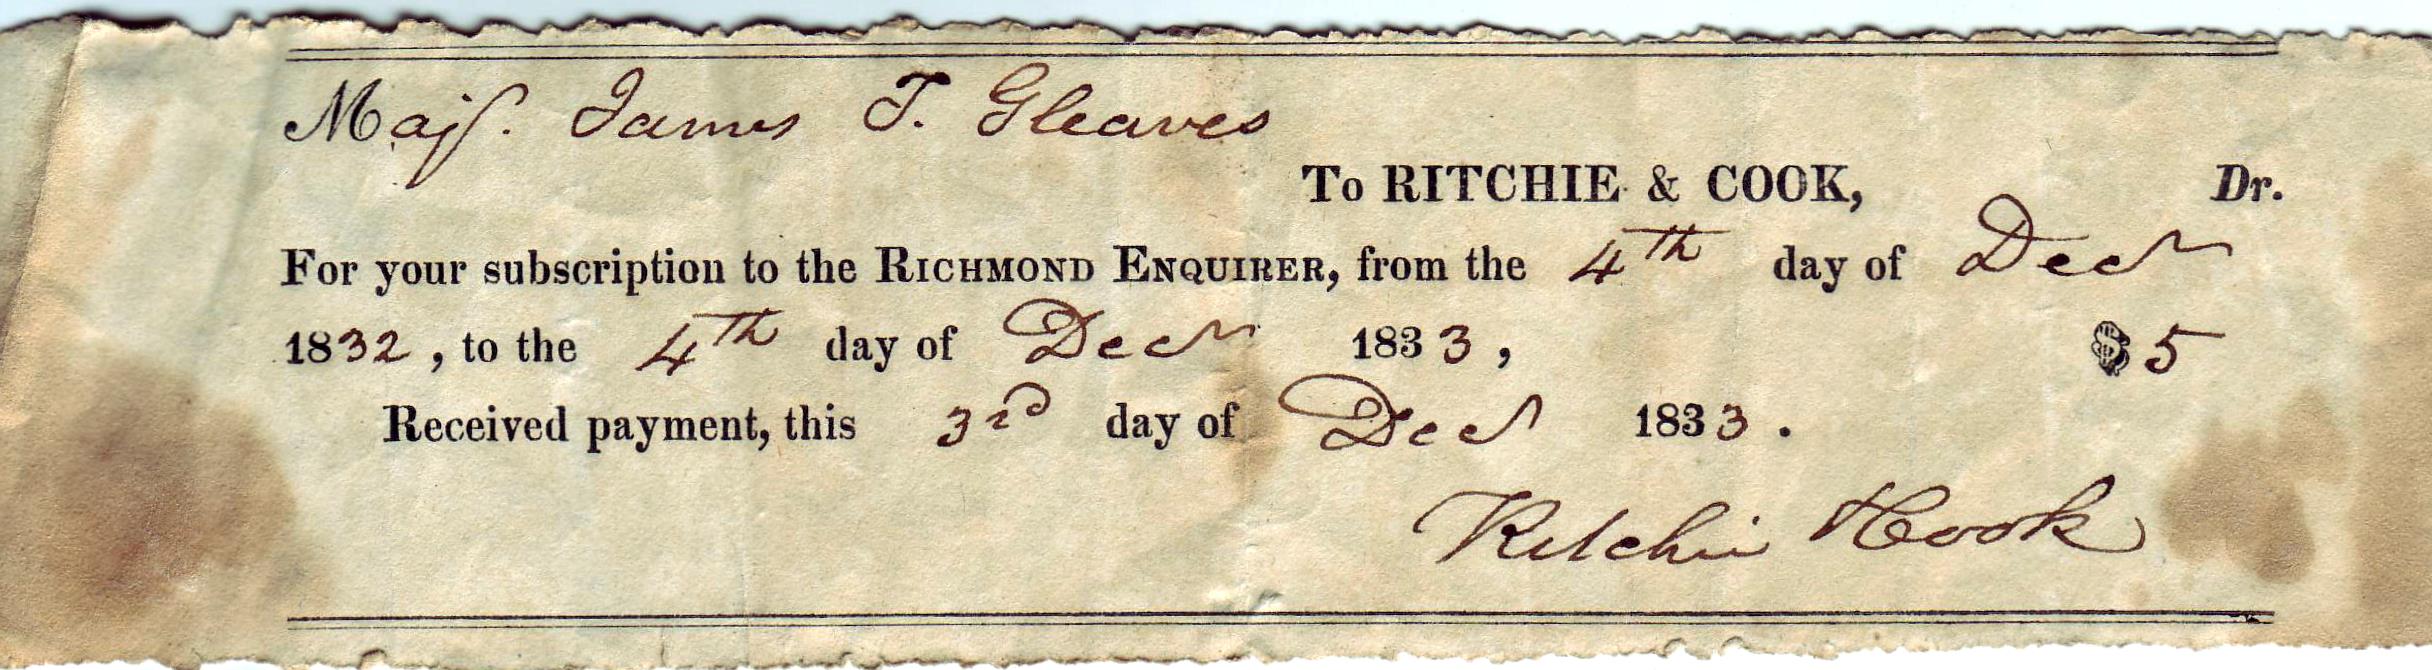 Maj. James T. Gleaves
To RITCHIE & COOK, Dr.
For your subscription to the RICHMOND ENQUIRER, from the 4th day of Decr
1832, to the 4th day of Decr 1833, $5
Received payment, this 3rd day of Decr 1833.
Ritchie & Cook